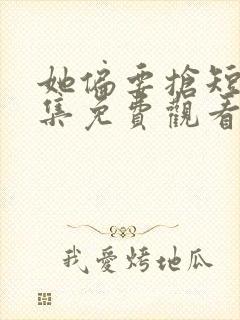 她偏要搶短
集免費觀看
我愛烤地瓜